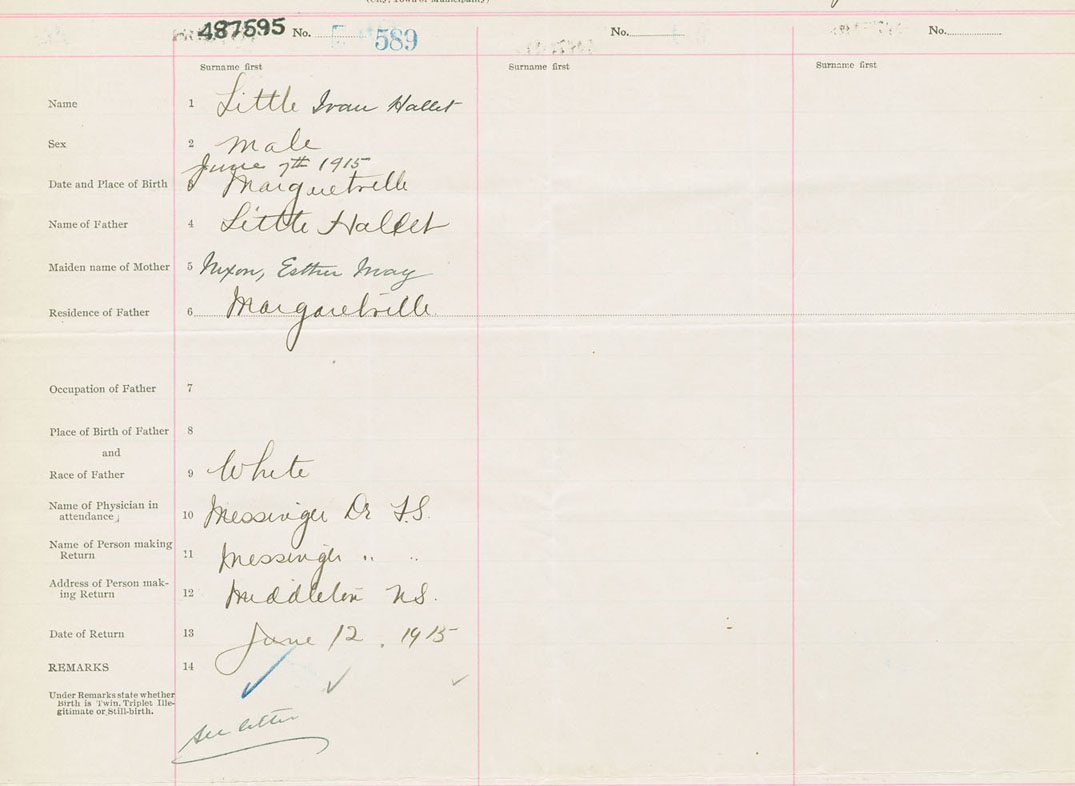 (City, Town or Municipality)
487595 No. 589 No. No.
Surname first Surname first Surname first
Name 1 Little Ivan Hallet
Sex 2 Male
June 7th 1915
Date and Place of Birth 3 Margretville
Name of Father 4 Little Hallet
Maiden name of Mother 5 Nixon, Esther May
Residence of Father 6 Margaretville
Occupation of Father 7
Place of Birth of Father 8
and
Race of Father 9 White
Name of Physician in
attendance 10 Messinger Dr F.S.
Name of Person making
Return 11 Messinger " "
Address of Person mak-
ing Return 12 Middleton N.S.
Date of Return 13 June 12, 1915
REMARKS 14
Under Remarks state whether
Birth is Twin, Triplet Ille-
gitimate or Still-birth.
See letter